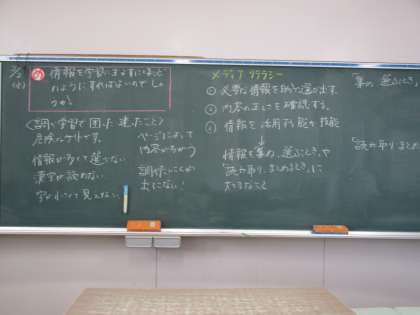 情報を学習にいかすには、どのようにすればよいのでしょうか。
〈調べ学習で困った、迷ったこと〉
危険なサイトです。
情報が多くて選べない
漢字が読めない
字が小さくて見えない
ページによって
内容がちがう
調べたいことが
出てこない!
メディアリテラシー
① 必要な情報を自分で選び出す。
② 内容の正しさを確認する。
③ 情報を活用する能力 技能
↓
情報を集め、選ぶとき、や
「読み取り、まとめるとき」に
大切なこと
「集め、選ぶとき
「読み取りまとめ